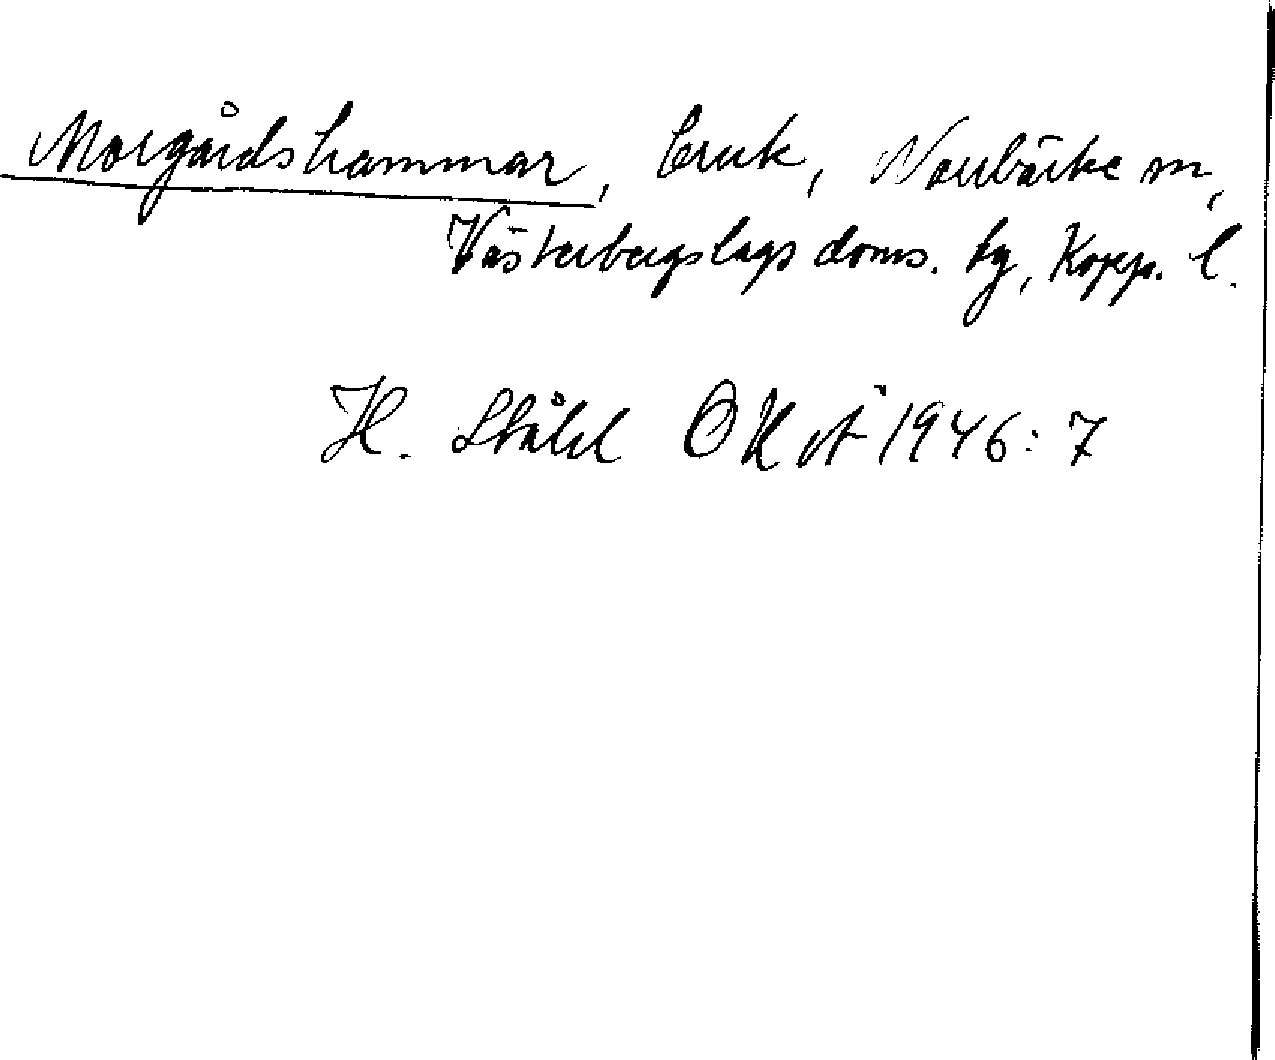 Morgårdshammar, bruk, Norrbärke sn,
Västerbergslags doms. tg, Kopp. l.
H. Ståhl OKA 1946:7